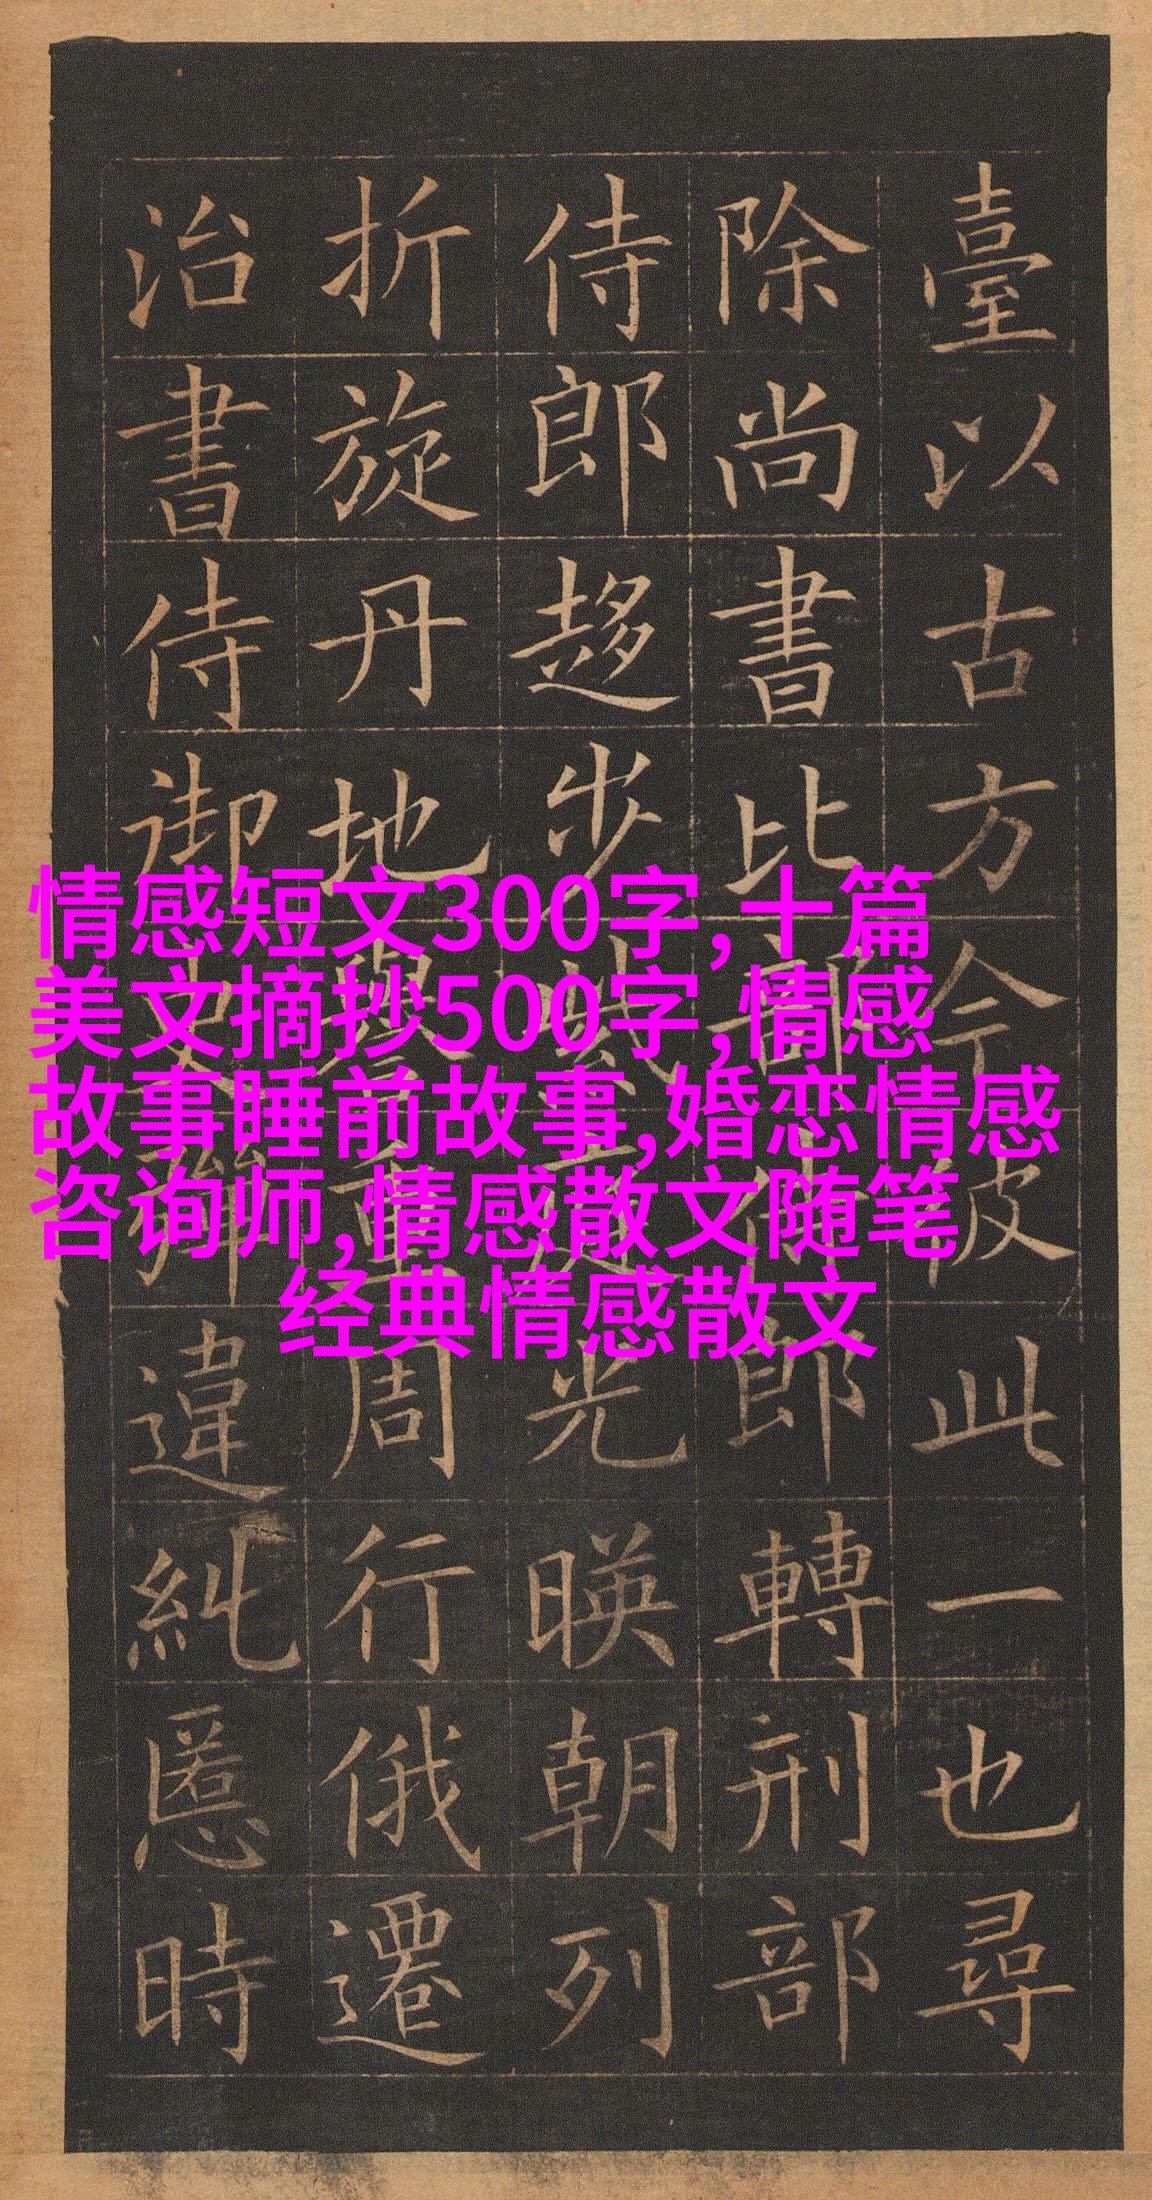 臺以古方今彼此一也尋
除尚書比部侍郎轉刑部
侍郎趍步紫庭光暎朝列
折旋丹地譽重周行俄遷
治書侍御史彈違糺慝時
情感短文300字,十篇
美文摘抄500字,情感
故事睡前故事,婚恋情感
咨询师,情感散文随笔
经典情感散文